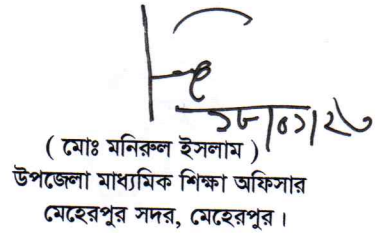 ( মোঃ মনিরুল ইসলাম )
উপজেলা মাধ্যমিক শিক্ষা অফিসার
মেহেরপুর সদর, মেহেরপুর।